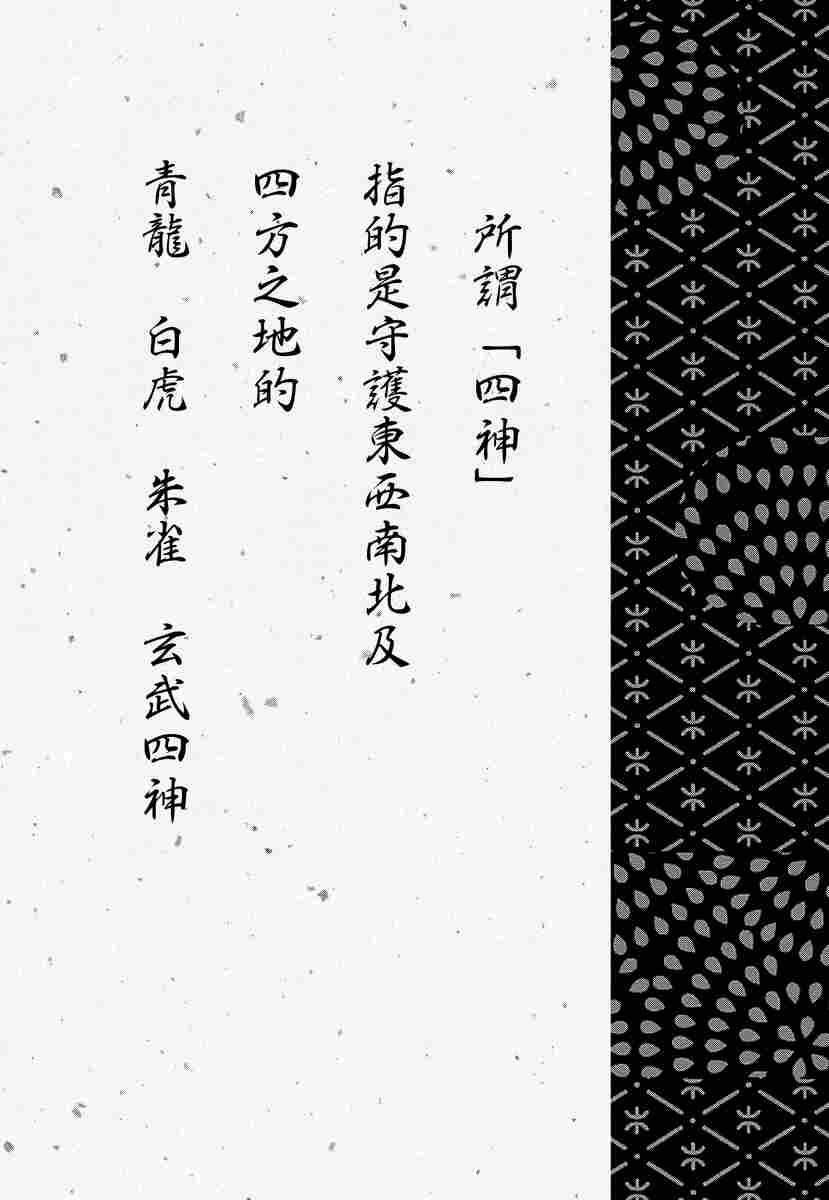 所謂「四神」
指的是守護東西南北及
四方之地的
青龍　白虎　朱雀　玄武四神